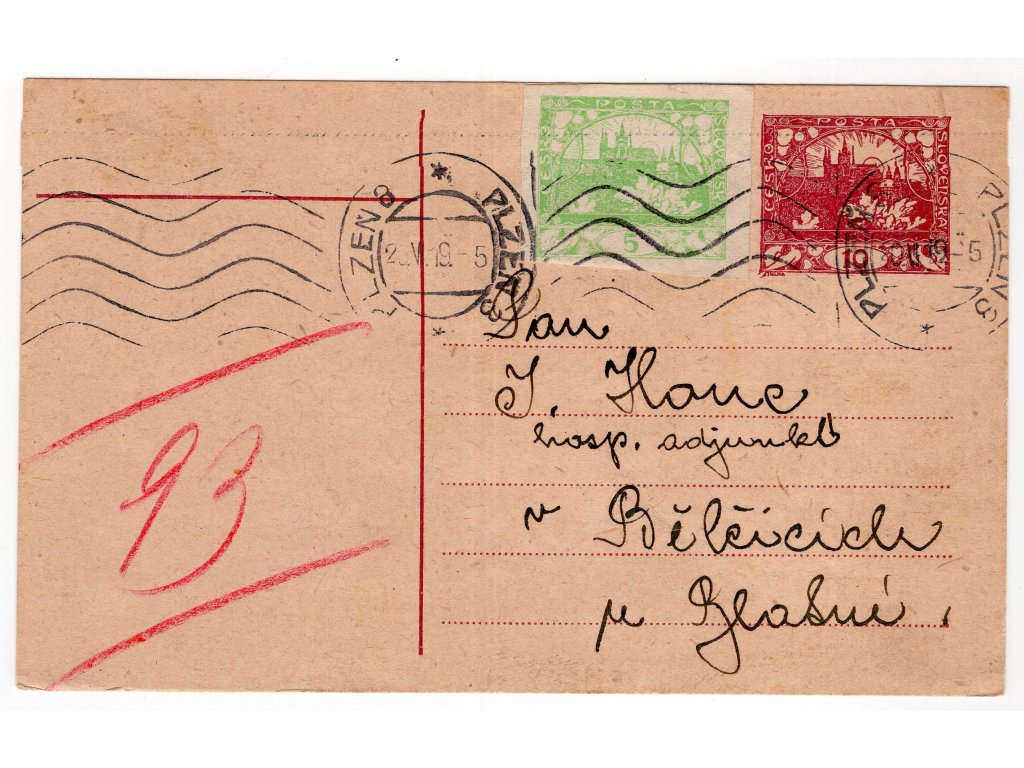 POSTA
ČESKO SLOVENSKÁ
5
POSTA
ČESKO SLOVENSKÁ
10
PLZEŇ 3 * PLZEŇ 3 *
V 19 - 5
PLZEŇ 3 *
19 - 5
Pan
J. Hanc
hosp. adjunkt
v Bělčicích
u Blatné.
93